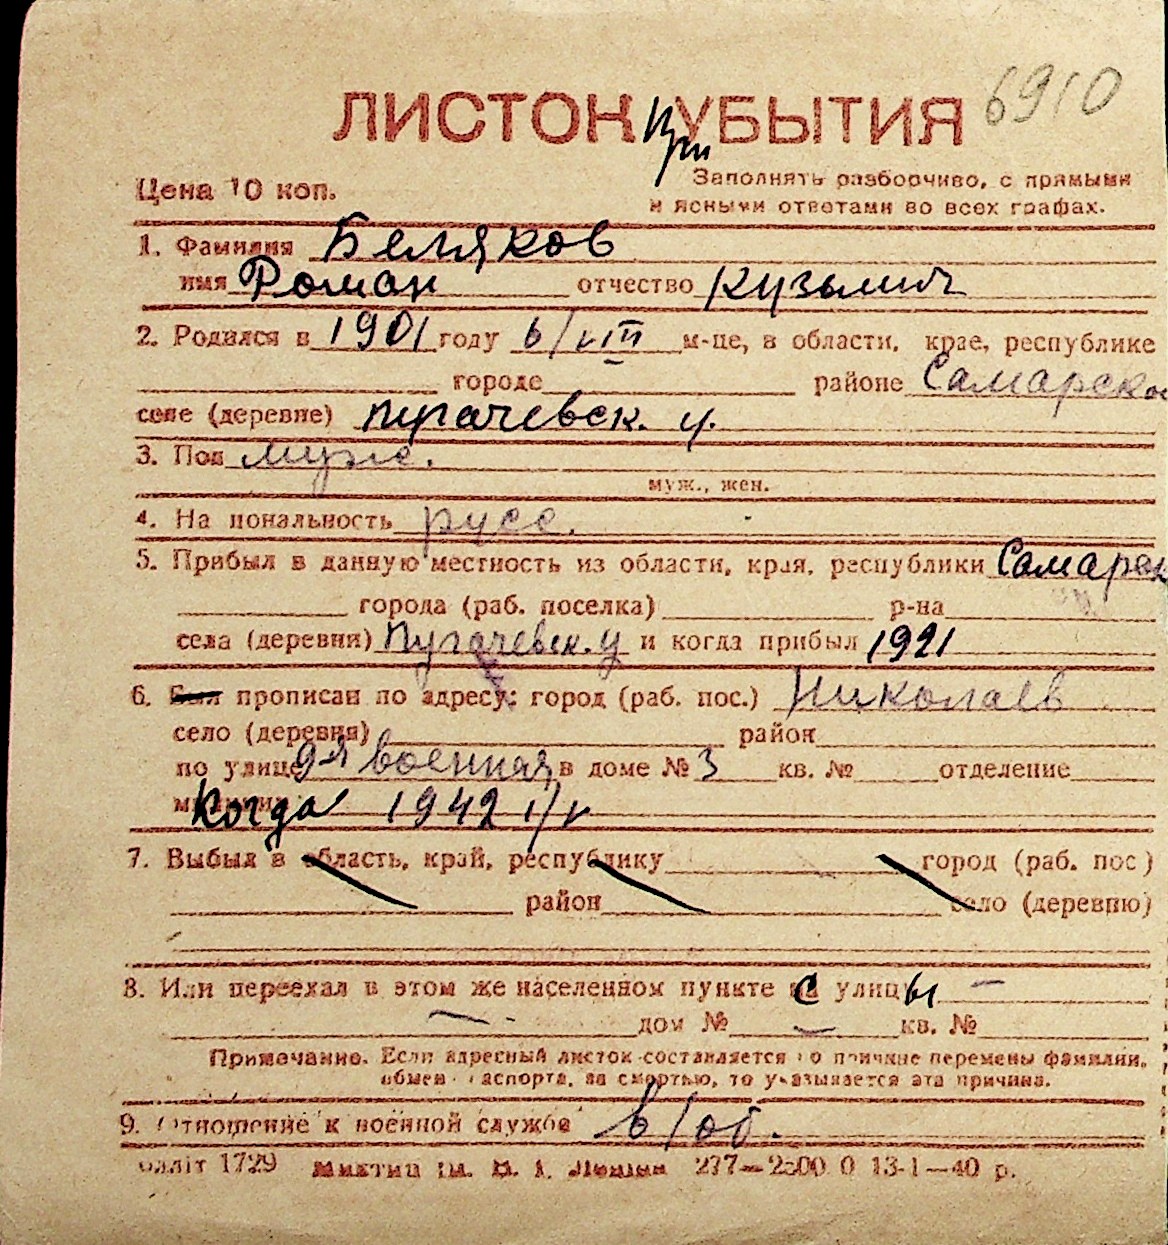 6910
ЛИСТОК При УБЫТИЯ
Цена 10 коп.
Заполнять разборчиво, с прямыми
и ясными ответами во всех графах.
1. Фамилия Беляков
имя Роман отчество Кузьмич
2. Родился в 1901 году 6/VIII м-це, в области, крае, республике
городе районе Самарско
селе (деревне) Пугачевск. у.
3. Пол муж.
муж., жен.
4. На иональность русс.
5. Прибыл в данную местность из области, края, республики Самарск
города (раб. поселка) р-на
села (деревни) Пугачевск. у и когда прибыл 1921
6. Был прописан по адресу: город (раб. пос.) Николаев
село (деревня) район
по улице 9-я военная в доме № 3 кв. № отделение
Когда 1942 г/г
7. Выбыл в область, край, республику город (раб. пос)
район село (деревню)
8. Или переехал в этом же населенном пункте с улицы —
дом № — кв. №
Примечание. Если адресный листок составляется по причине перемены фамилии,
обмен паспорта, за смертью, то указывается эта причина.
9. Отношение к военной службе в/об.
1729 277—2500 0 13-1—40 р.